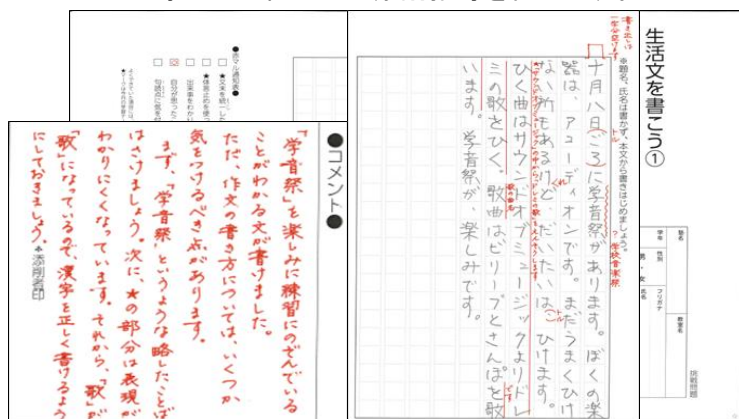 生活文を書こう①
※題名、氏名は書かず、本文から書きはじめましょう。
塾名
教室名
学年
性別
フリガナ
男・女
氏名
挑戦問題
書き出しは
一字分空けます
十月八日(ごろ)に学音祭があります。ぼくの楽
器は、アコーディオンです。まだうまくひけ
ない所もあるけど、だいたいは、ひけます。
ひく曲はサウンドオブミュージックよりドレ
ミの歌をひく。歌曲はビリーブとさんぽを歌
います。学音祭が、楽しみです。
トル
?学校音楽祭
トル
です
●赤マル通知表●
●コメント●
「学音祭」を楽しみに練習にのぞんでいる
ことがわかる文が書けました。
ただ、作文の書き方については、いくつか
気をつけるべき点があります。
まず、「学音祭」というような略したことば
はさけましょう。次に、★の部分は表現が
わかりにくくなっています。それから、「歌」が
「歌」になっているので、漢字を正しく書けるよう
にしておきましょう。
添削者印